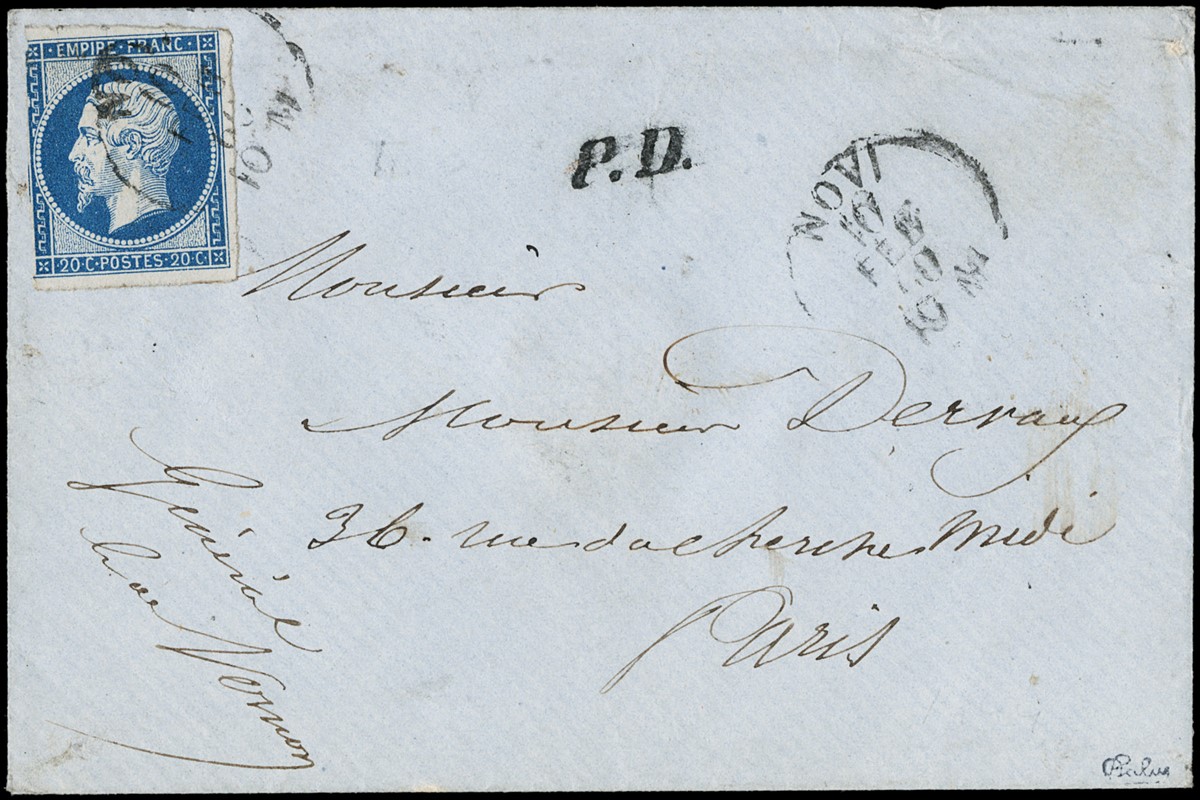 EMPIRE · FRANC
20 · C · POSTES · 20 · C
P.D.
NOVI
10
FEB
60
M
Monsieur
Monsieur Dervaux
36. rue du cherche Midi
Paris
Général